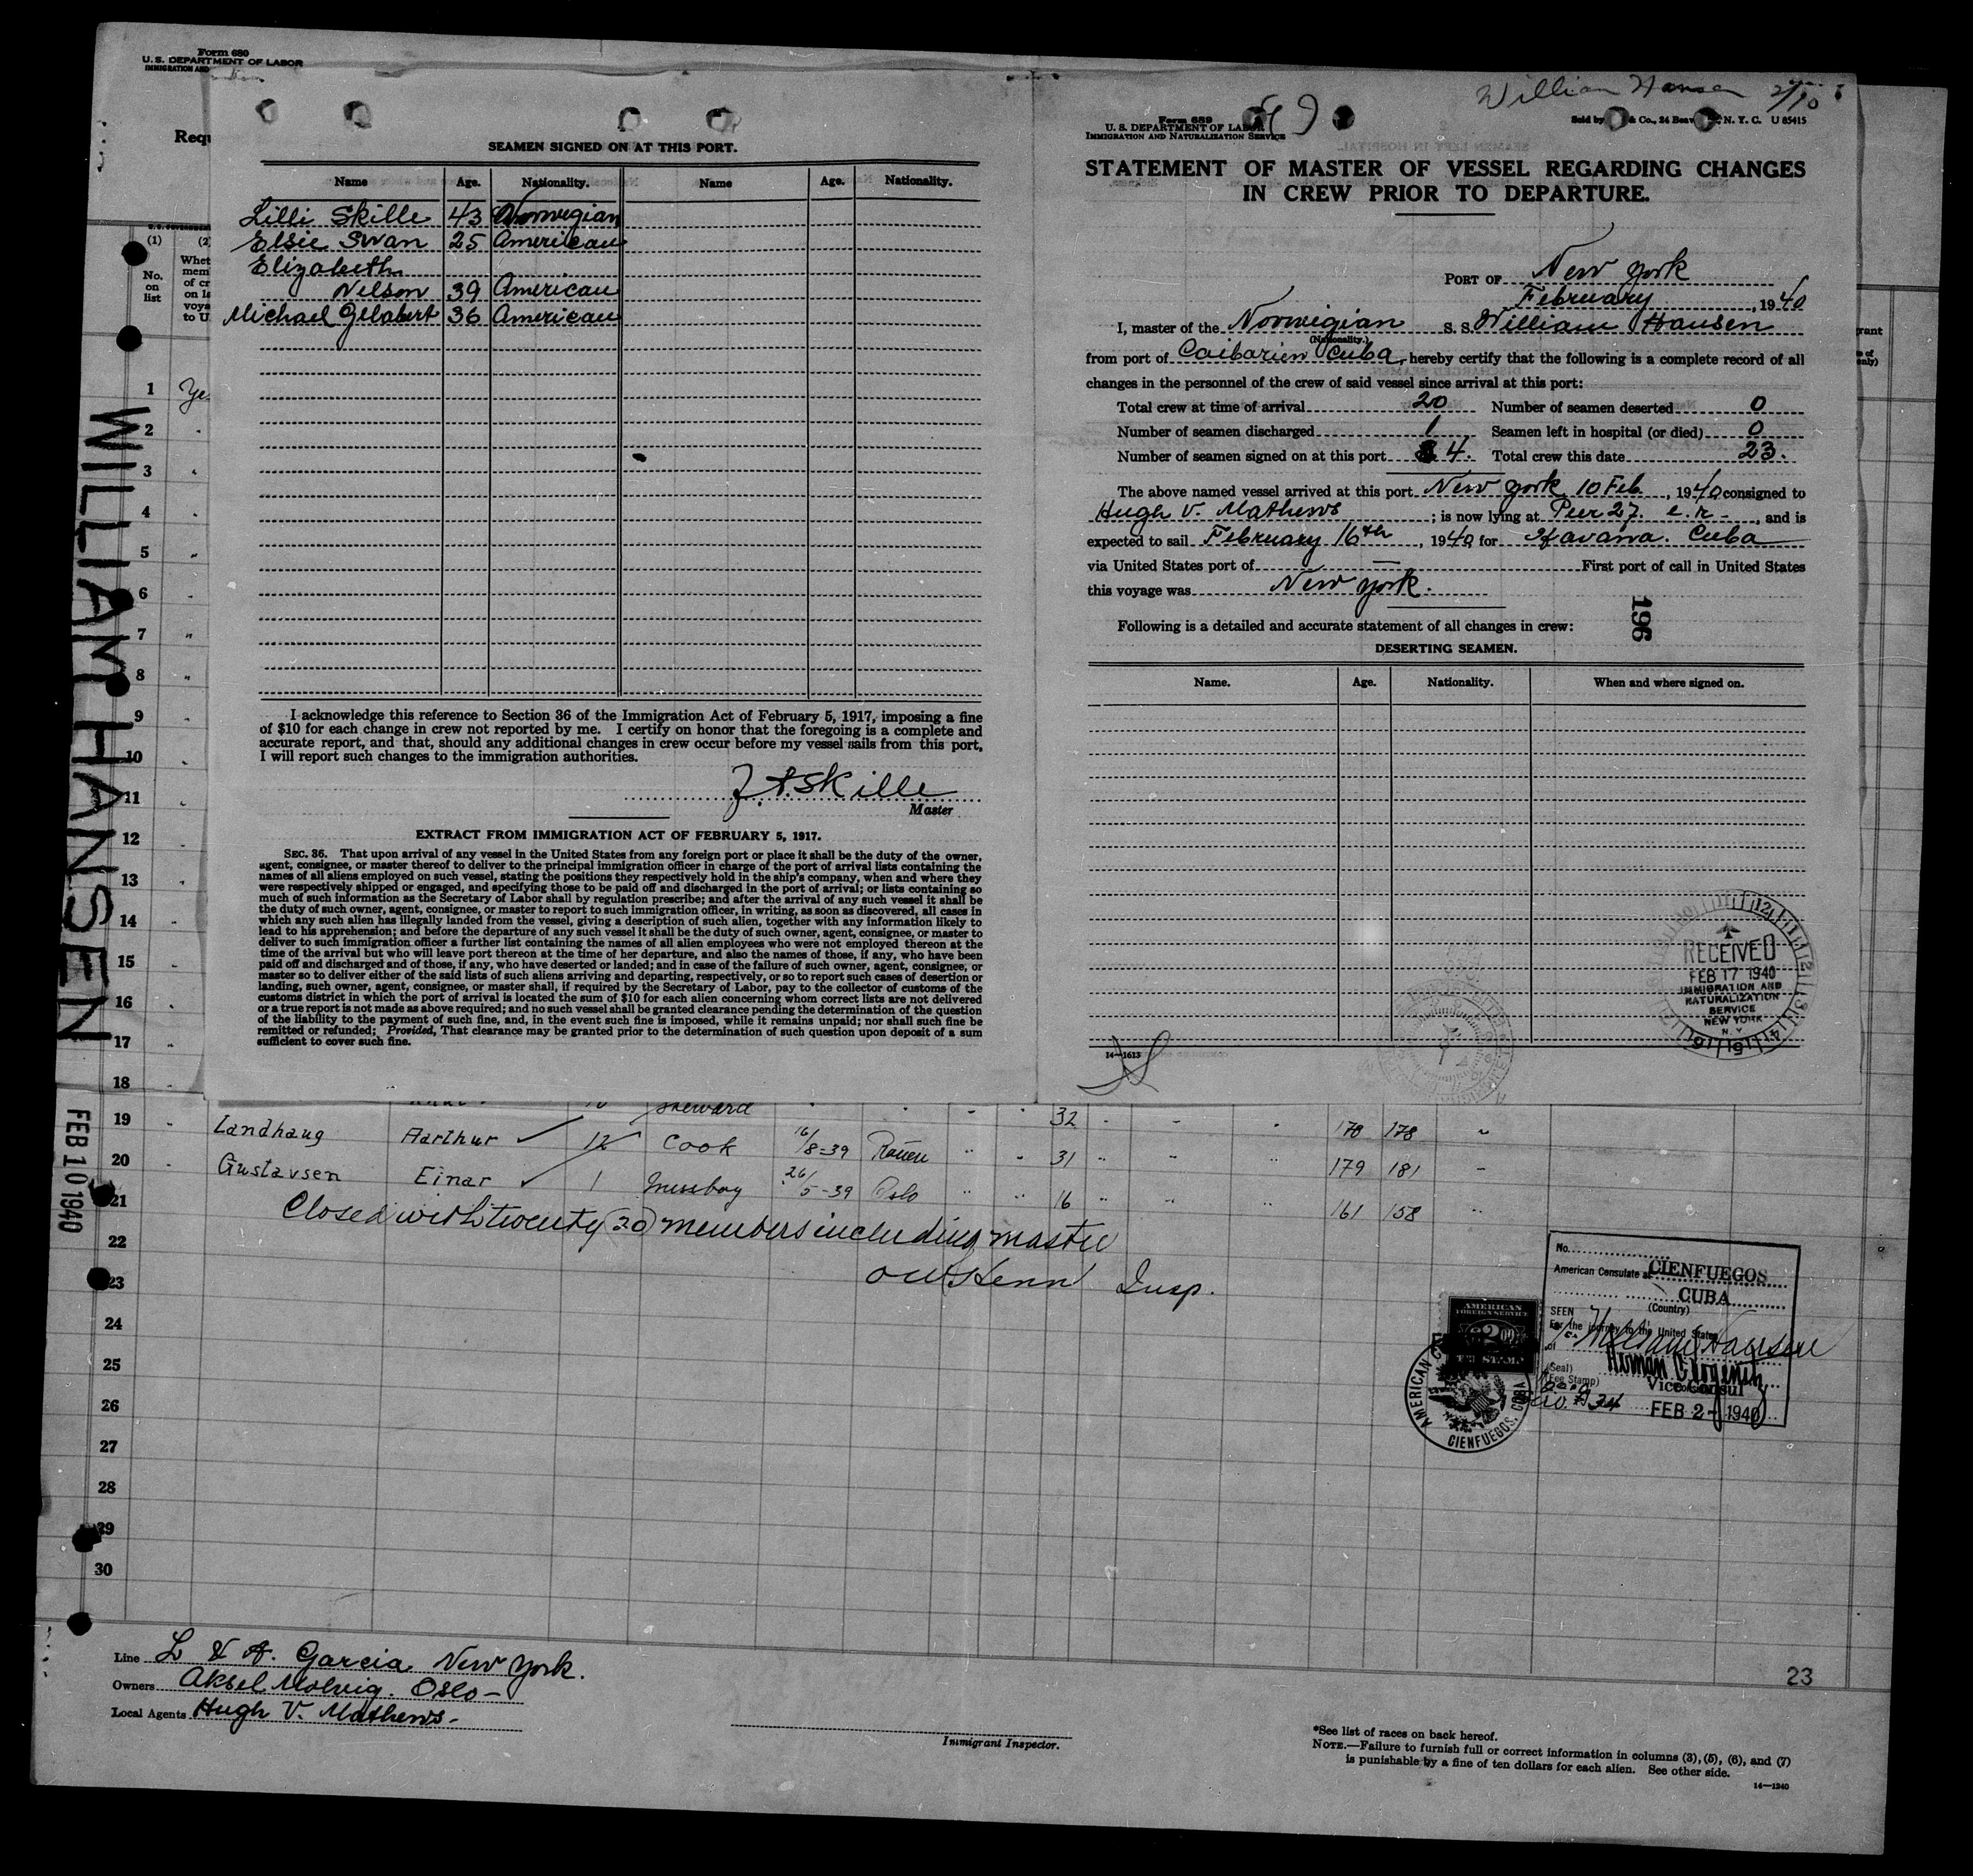 Form 680
U. S. DEPARTMENT OF LABOR
IMMIGRATION AND
Requ
(1)
(2)
No.
on
list
Whet
mem
of cr
on la
voya
to U
WILLIAM HANSEN
FEB 10 1940
SEAMEN SIGNED ON AT THIS PORT.
Name Age. Nationality. Name Age. Nationality.
Lilli Skille 43 Norwegian
Elsie Swan 25 American
Elizabeth
Nelson 39 American
Michael Gelabert 36 American
I acknowledge this reference to Section 36 of the Immigration Act of February 5, 1917, imposing a fine
of $10 for each change in crew not reported by me. I certify on honor that the foregoing is a complete and
accurate report, and that, should any additional changes in crew occur before my vessel sails from this port,
I will report such changes to the immigration authorities.
Skille
Master
EXTRACT FROM IMMIGRATION ACT OF FEBRUARY 5, 1917.
SEC. 36. That upon arrival of any vessel in the United States from any foreign port or place it shall be the duty of the owner,
agent, consignee, or master thereof to deliver to the principal immigration officer in charge of the port of arrival lists containing the
names of all aliens employed on such vessel, stating the positions they respectively hold in the ship's company, when and where they
were respectively shipped or engaged, and specifying those to be paid off and discharged in the port of arrival; or lists containing so
much of such information as the Secretary of Labor shall by regulation prescribe; and after the arrival of any such vessel it shall be
the duty of such owner, agent, consignee, or master to report to such immigration officer, in writing, as soon as discovered, all cases in
which any such alien has illegally landed from the vessel, giving a description of such alien, together with any information likely to
lead to his apprehension; and before the departure of any such vessel it shall be the duty of such owner, agent, consignee, or master to
deliver to such immigration officer a further list containing the names of all alien employees who were not employed thereon at the
time of the arrival but who will leave port thereon at the time of her departure, and also the names of those, if any, who have been
paid off and discharged and of those, if any, who have deserted or landed; and in case of the failure of such owner, agent, consignee, or
master so to deliver either of the said lists of such aliens arriving and departing, respectively, or so to report such cases of desertion or
landing, such owner, agent, consignee, or master shall, if required by the Secretary of Labor, pay to the collector of customs of the
customs district in which the port of arrival is located the sum of $10 for each alien concerning whom correct lists are not delivered
or a true report is not made as above required; and no such vessel shall be granted clearance pending the determination of the question
of the liability to the payment of such fine, and, in the event such fine is imposed, while it remains unpaid; nor shall such fine be
remitted or refunded; Provided, That clearance may be granted prior to the determination of such question upon deposit of a sum
sufficient to cover such fine.
William Hansen 2/10
Form 689
U. S. DEPARTMENT OF LABOR
IMMIGRATION AND NATURALIZATION SERVICE
Sold by & Co., 24 Beav N. Y. C. U 85415
STATEMENT OF MASTER OF VESSEL REGARDING CHANGES
IN CREW PRIOR TO DEPARTURE.
PORT OF New York
February, 1940
I, master of the Norwigian S. S. William Hansen
(Nationality.)
from port of Caibarien Cuba, hereby certify that the following is a complete record of all
changes in the personnel of the crew of said vessel since arrival at this port:
Total crew at time of arrival 20 Number of seamen deserted 0
Number of seamen discharged 1 Seamen left in hospital (or died) 0
Number of seamen signed on at this port 4. Total crew this date 23.
The above named vessel arrived at this port New York 10 Feb, 1940 consigned to
Hugh V. Mathews; is now lying at Peer 27. e. r., and is
expected to sail February 16th, 1940 for Havana. Cuba
via United States port of — First port of call in United States
this voyage was New York.
196
Following is a detailed and accurate statement of all changes in crew:
DESERTING SEAMEN.
Name. Age. Nationality. When and where signed on.
RECEIVED
FEB 17 1940
IMMIGRATION AND
NATURALIZATION
SERVICE
NEW YORK
N. Y.
14—1613
1 Yes
2
3
4
5
6
7
8
9
10
11
12
13
14
15
16
17
18
Steward 32 178 178
19 Landhaug Aarthur 12 Cook 16/8-39 Rouen " " 31 " " " 179 181
20 Gustavsen Einar 1 Messboy 26/5-39 Oslo " " 16 " " " 161 158 "
21 Closed with twenty (20) members including master
22 Insp.
23
24
25
26
27
28
29
30
No.
American Consulate at CIENFUEGOS
CUBA
(Country)
SEEN
For the journey to the United States
of William Hansen
(Seal)
(Fee Stamp)
Vice Consul
FEB 2 - 1940
AMERICAN
FOREIGN SERVICE
CIENFUEGOS, CUBA
Line L & A. Garcia New York.
Owners Aksel Molvig. Oslo —
Local Agents Hugh V. Mathews.
Immigrant Inspector.
23
*See list of races on back hereof.
NOTE.—Failure to furnish full or correct information in columns (3), (5), (6), and (7)
is punishable by a fine of ten dollars for each alien. See other side.
14—1240